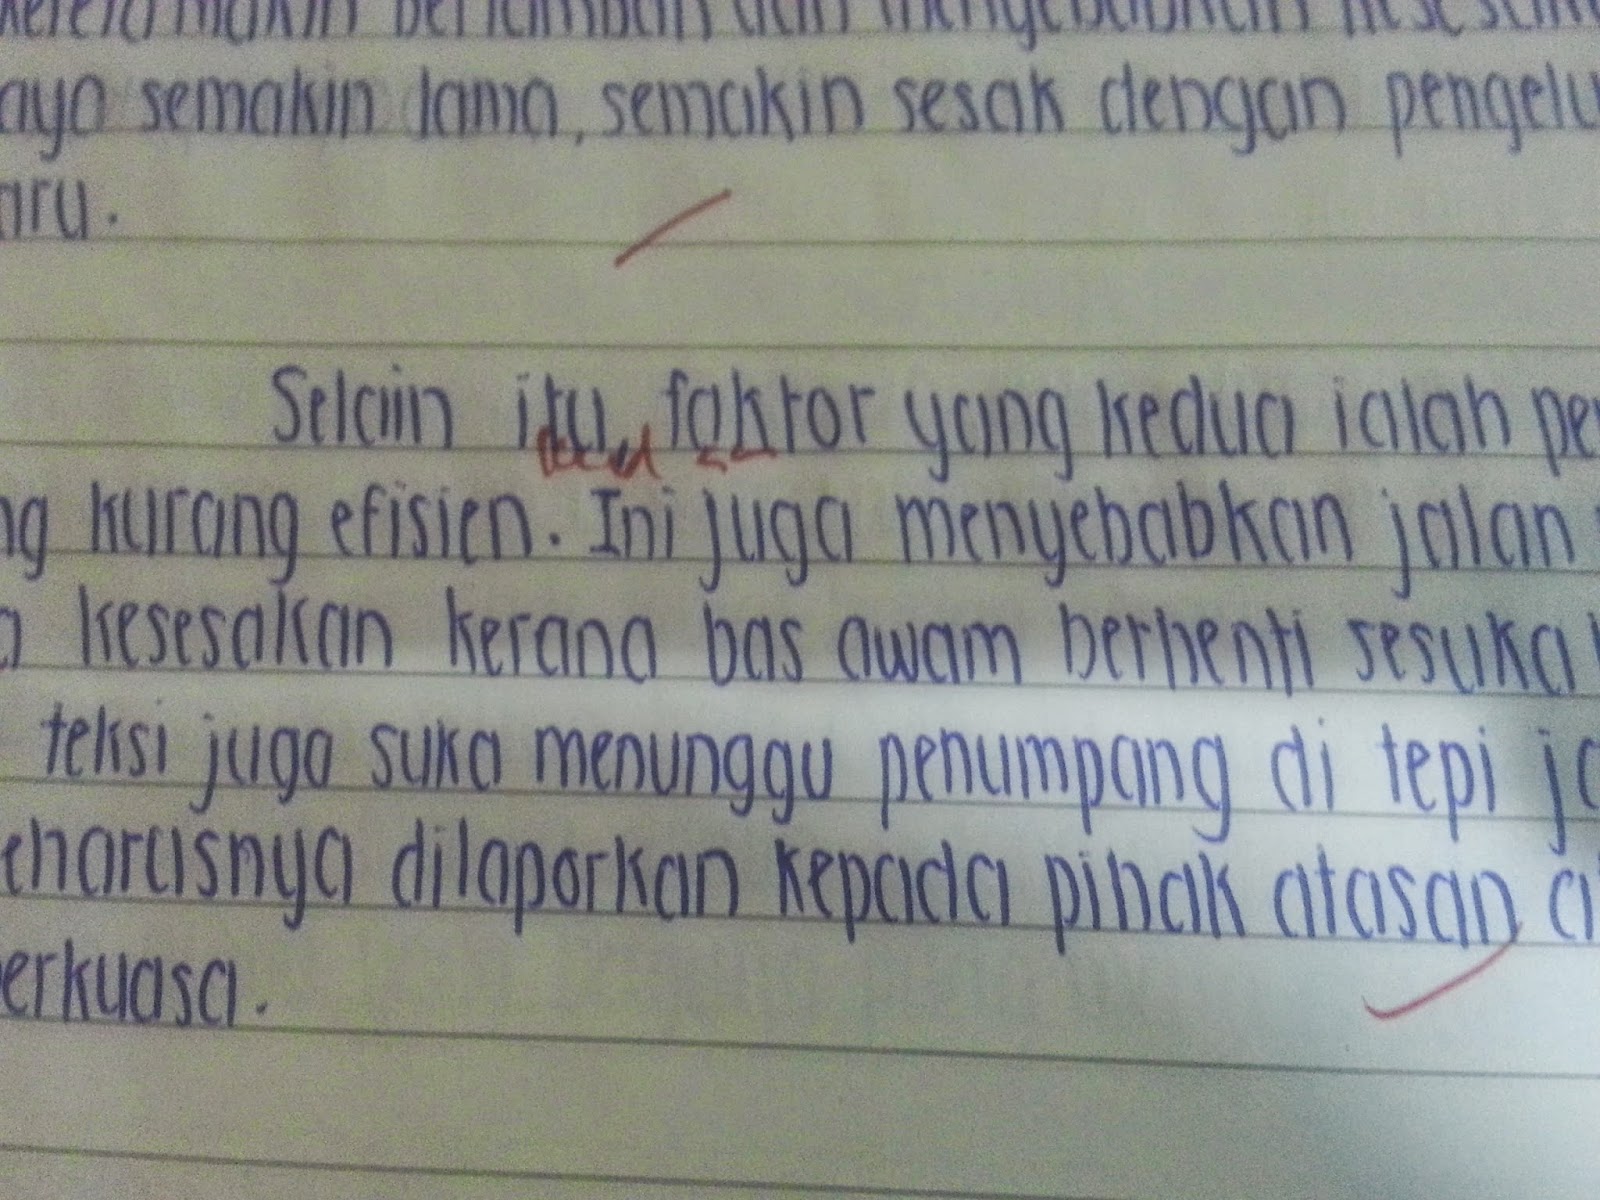 makin dan menyebabkan
semakin lama, semakin sesak dengan pengelu
aru.
Selain itu, faktor yang kedua ialah pe
ng kurang efisien. Ini juga menyebabkan jalan
a kesesakan kerana bas awam berhenti sesuka
teksi juga suka menunggu penumpang di tepi ja
eharusnya dilaporkan kepada pihak atasan a
erkuasa.